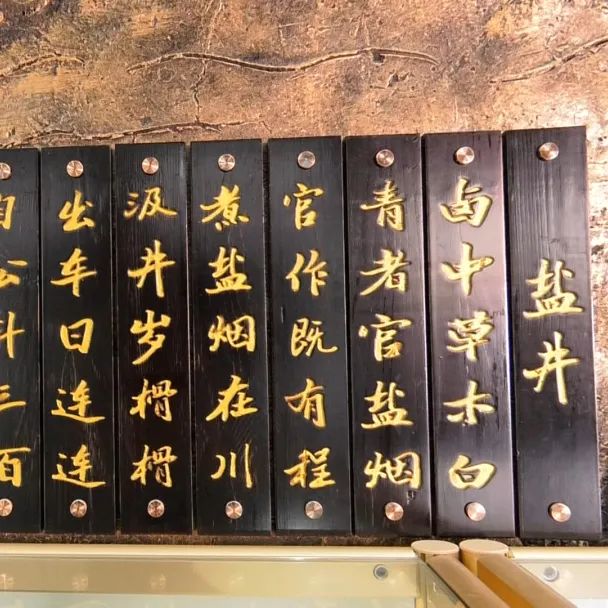 盐井
卤中草木白
青者官盐烟
官作既有程
煮盐烟在川
汲井岁榾榾
出车日连连
自公斗三百